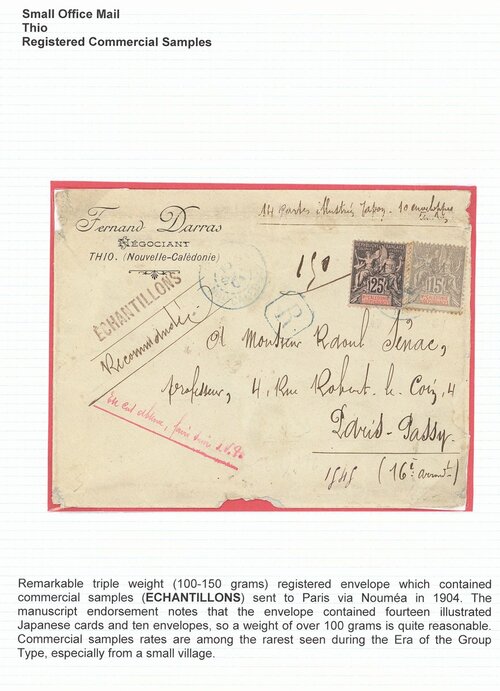 Small Office Mail
Thio
Registered Commercial Samples
Fernand Darras
NÉGOCIANT
THIO. (Nouvelle-Calédonie)
14 Cartes illustrées Japon - 10 enveloppes
150
25
15
ÉCHANTILLONS
R
Recommandé
A Monsieur Raoul Sénac,
professeur, 4, Rue Robert le Coin, 4
Paris-Passy
(16e arrondt)
Remarkable triple weight (100-150 grams) registered envelope which contained
commercial samples (ECHANTILLONS) sent to Paris via Nouméa in 1904. The
manuscript endorsement notes that the envelope contained fourteen illustrated
Japanese cards and ten envelopes, so a weight of over 100 grams is quite reasonable.
Commercial samples rates are among the rarest seen during the Era of the Group
Type, especially from a small village.